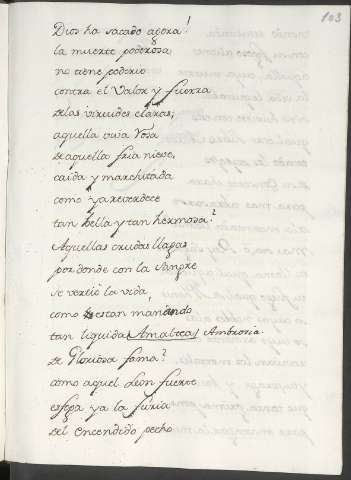 103
Dios ha sacado agora!
la muerte poderosa,
no tiene poderio
contra el Valor y fuerza
de las virtudes claras;
aquella viva Rosa
de aquella fria nieve,
caida y marchitada
como ya reverdece
tan bella y tan hermosa?
Aquellas crudas llagas
por donde con la Sangre
se vertiò la vida,
como estan manando
tan liquida Amaltea, Ambrosia
de Gloriosa fama?
como aquel Leon fuerte
ya la furia
del encendido pecho